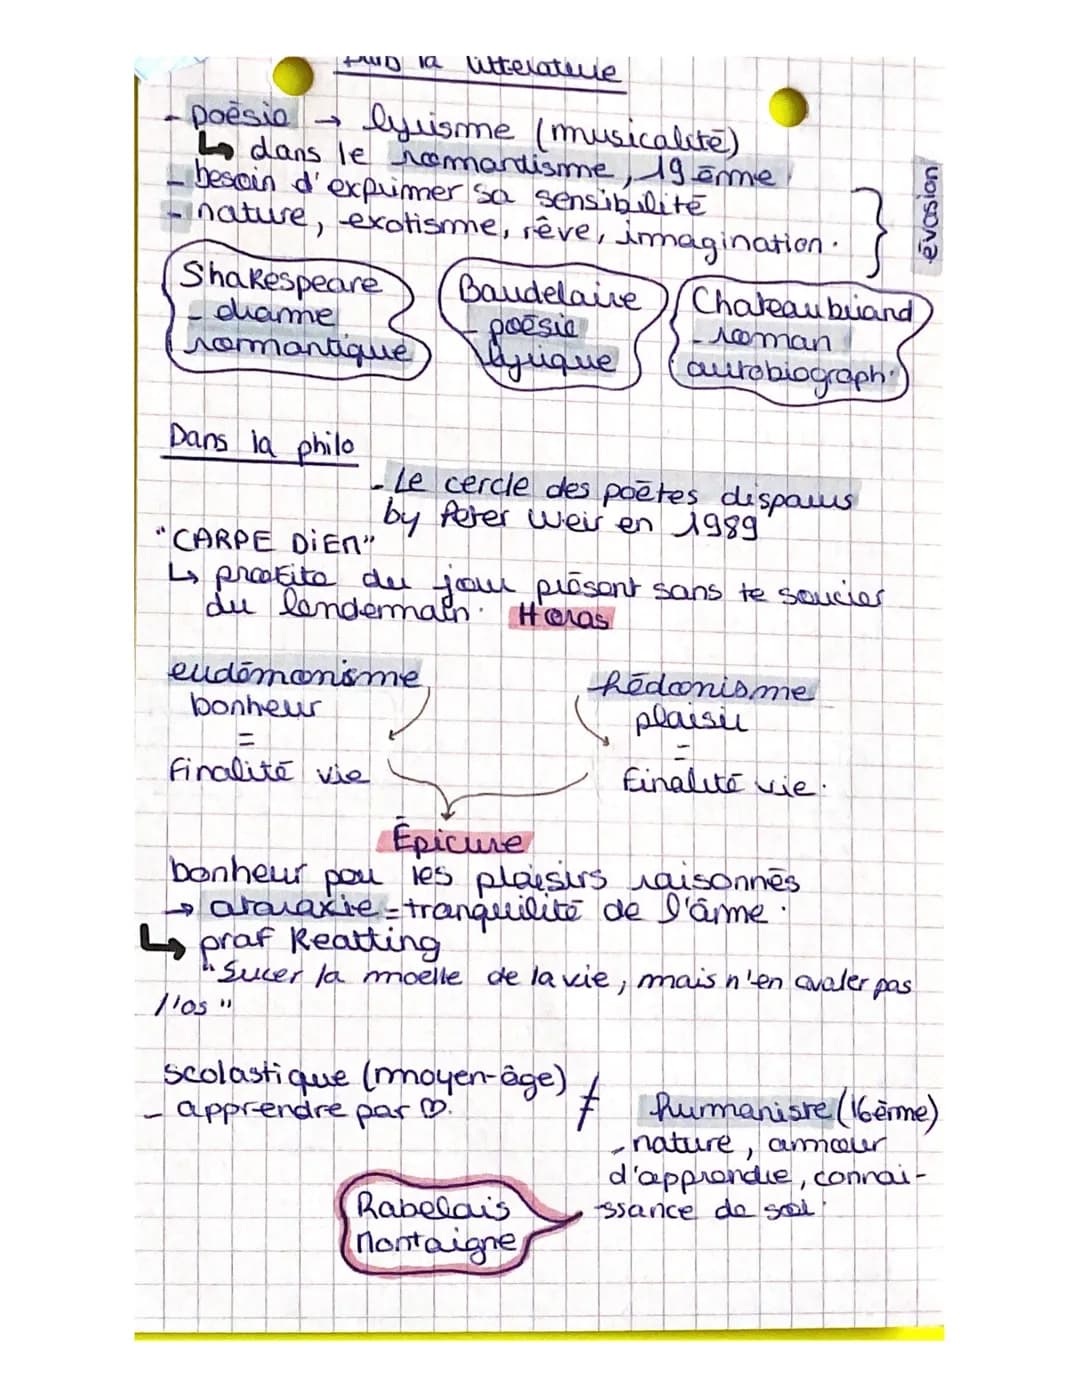 la littérature
- poésie → lyrisme (musicalité)
↳ dans le romantisme, 19ème
- besoin d'exprimer sa sensibilité
- nature, exotisme, rêve, imagination.
évasion
Shakespeare
- drame
romantique
Baudelaire
- poésie
lyrique
Chateaubriand
- roman
autobiograph.
Dans la philo
- Le cercle des poètes disparus
by Peter Weir en 1989
"CARPE DiEM"
↳ profite du jour présent sans te soucier
du lendemain. Horas
eudémonisme
bonheur
=
finalité vie
hédonisme
plaisir
=
finalité vie.
Épicure
bonheur par les plaisirs raisonnés
→ ataraxie = tranquilité de l'âme.
↳ prof Keatting
"Sucer la moelle de la vie, mais n'en avaler pas
l'os"
scolastique (moyen-âge)
- apprendre par ♡.
≠
humaniste (16ème)
- nature, amour
d'apprendre, connai-
ssance de soi.
Rabelais
Montaigne